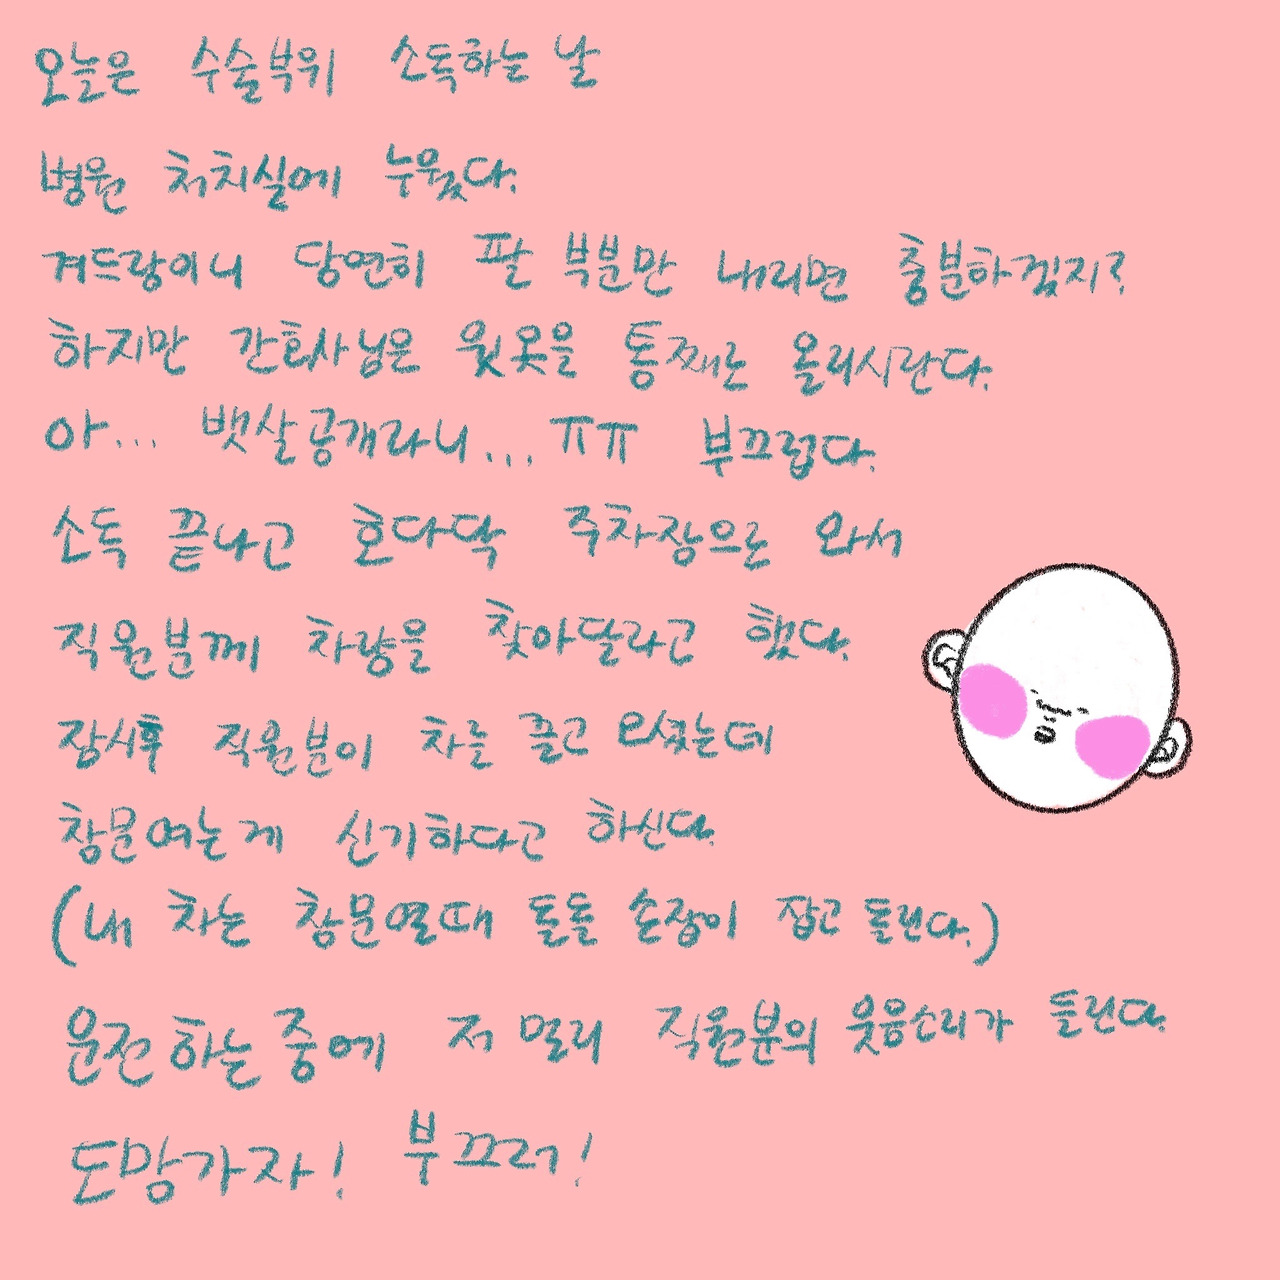 오늘은 수술부위 소독하는 날
병원 처치실에 누웠다.
겨드랑이니 당연히 팔 부분만 내리면 충분하겠지?
하지만 간호사님은 윗옷을 통째로 올리시란다.
아... 뱃살공개라니... ㅠㅠ 부끄럽다.
소독 끝나고 호다닥 주차장으로 와서
직원분께 차량을 찾아달라고 했다.
잠시후 직원분이 차를 끌고 오셨는데
창문여는게 신기하다고 하신다.
(내 차는 창문열때 돌돌 손잡이 잡고 돌린다.)
운전하는 중에 저 멀리 직원분의 웃음소리가 들린다.
도망가자! 부끄러!